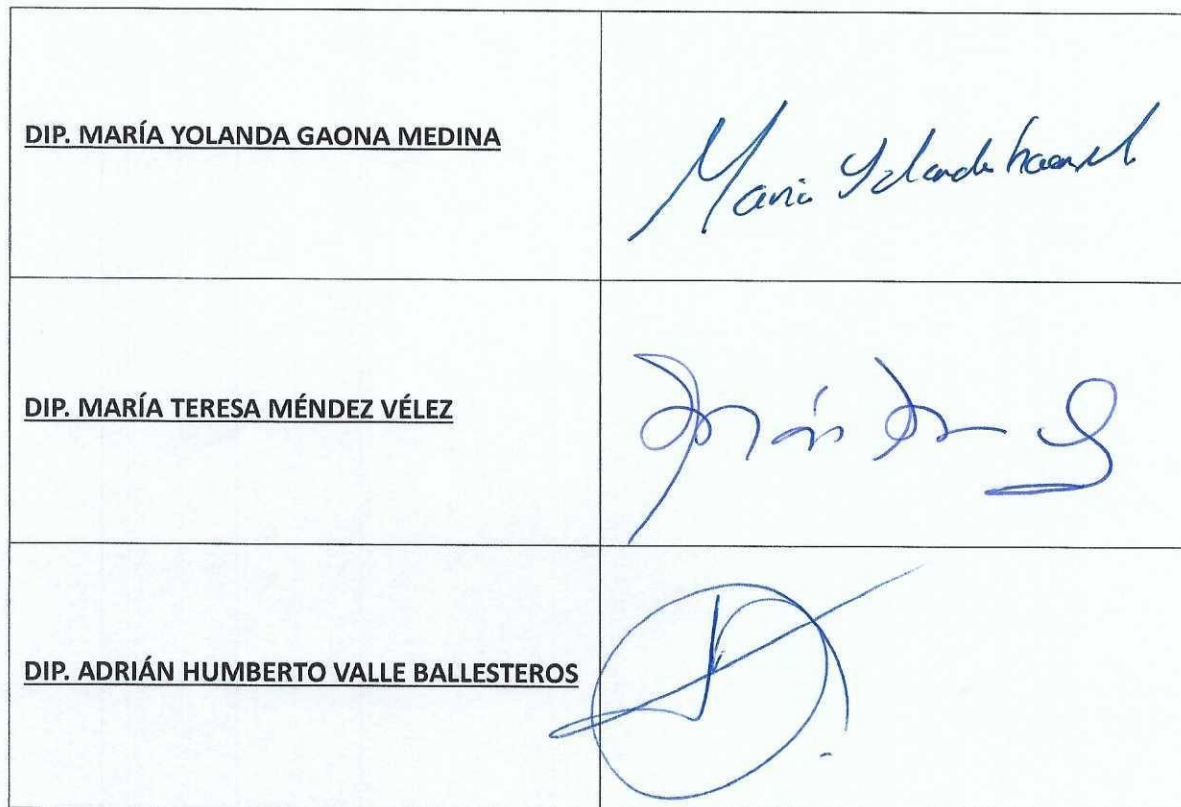 DIP. MARÍA YOLANDA GAONA MEDINA
Maria Yolanda
DIP. MARÍA TERESA MÉNDEZ VÉLEZ
DIP. ADRIÁN HUMBERTO VALLE BALLESTEROS